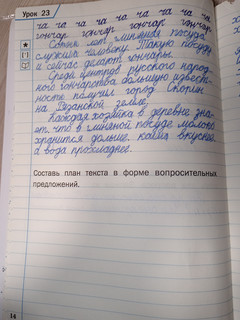 Урок 23
ча ча ча ча ча ча ча ча ча
гончар гончар гончар гончар
Сотни лет глиняная посуда
служила человеку. Такую посуду
и сейчас делают гончары.
Среди центров русского народ-
ного гончарства большую извест-
ность получил город Скопин
на Рязанской земле.
Каждая хозяйка в деревне зна-
ет, что в глиняной посуде молоко
хранится дольше, каша вкуснее,
а вода прохладнее.
Составь план текста в форме вопросительных
предложений.
14